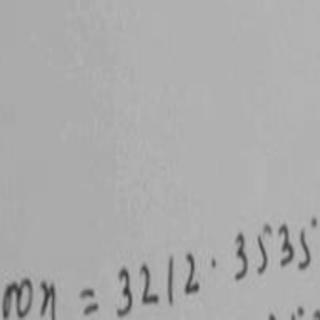 00x = 3212.3535